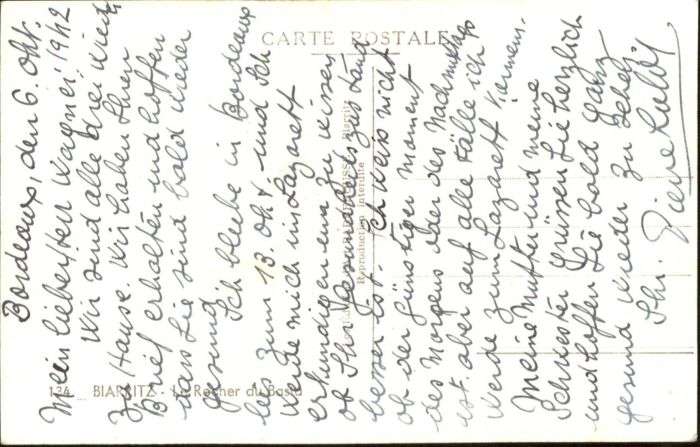 CARTE POSTALE
Bordeaux, den 6. Okt. 1942
Mein liebersten Wagner!
Wir sind alle drei wieder
zu Hause. Wir haben Ihren
Brief erhalten und hoffen
dass Sie sind bald wieder
gesund.
Ich bleibe in Bordeaux
bis zum 13. Okt und Ich
werde mich im Lazarett
erkundigen um zu wissen
ob Ihr Gesundheitszustand
besser ist. Ich weiss nicht
ob der günstiger Moment
des Morgens oder des Nachmittags
ist. aber auf alle Fälle ich
werde zum Lazarett kommen.
Meine Mutter und meine
Schwester grüssen Sie herzlich
und hoffen Sie bald ganz
gesund wieder zu sehen.
Ihr.
Reproduction interdite
Biarritz
134 BIARRITZ - Le Rocher du Basta